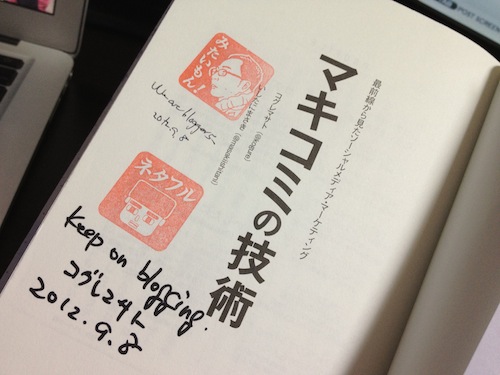 最前線から見たソーシャルメディア・マーケティング
マキコミの技術
コグレマサト (@kogure)
いしたにまさき (@masakiishitani)
みたいもん!
We are bloggers.
2012.9.8
ネタフル
Keep on blogging.
コグレマサト
2012.9.8
POST SCREEN